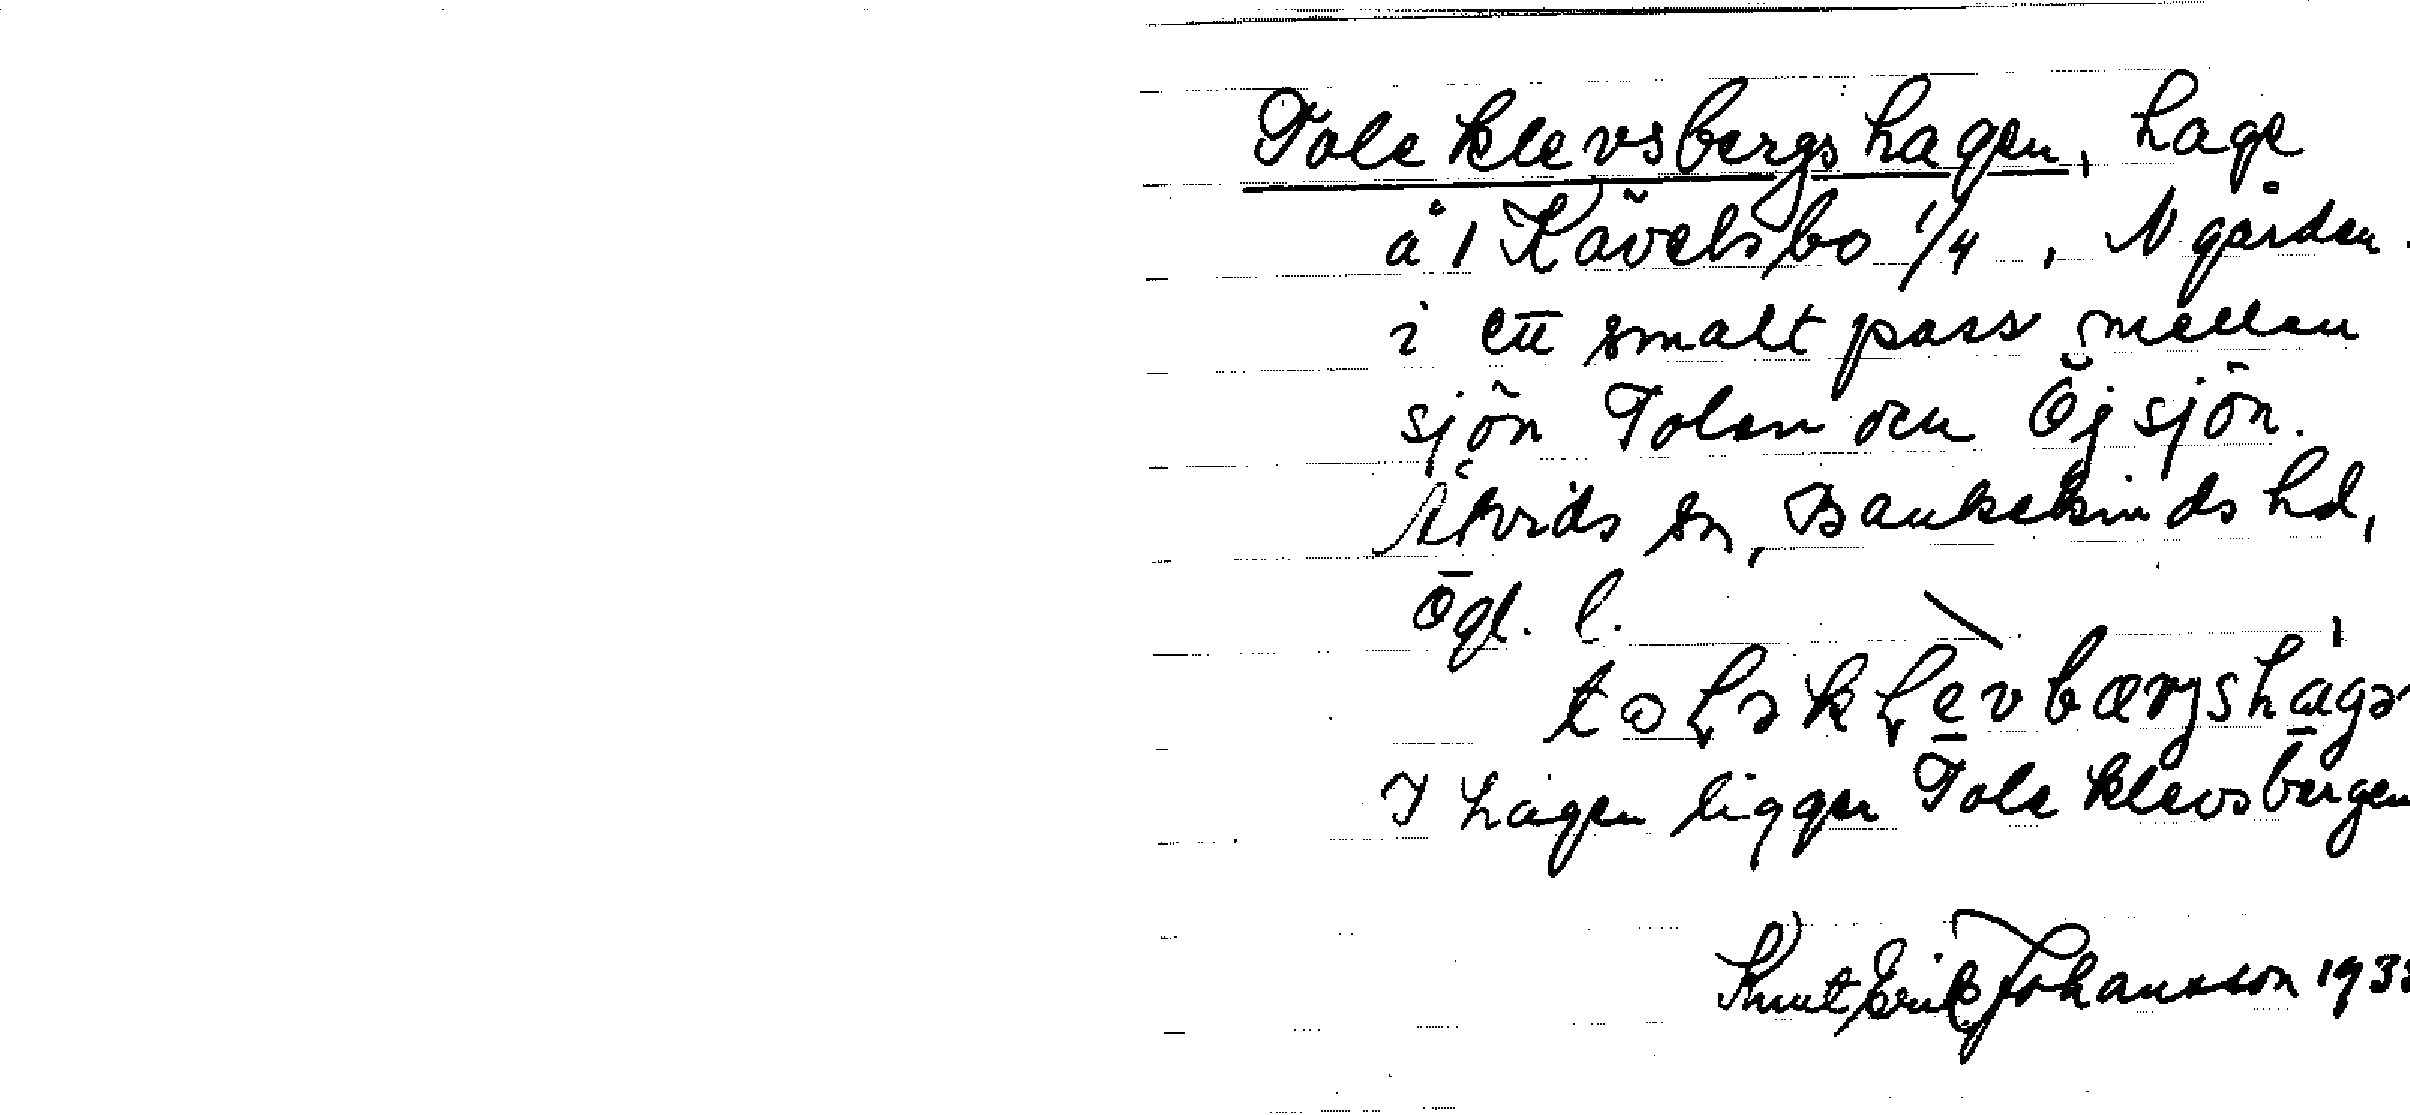 Toleklevsbergshagen, hage
å 1 Kävelsbo 1/4, N gården.
i ett smalt pass mellan
sjön Tolen och Öjsjön.
Åtvids sn, Bankekinds hd,
Ögl. l.
I hagen ligger Toleklevsbergen
Knut Erik Johansson 193